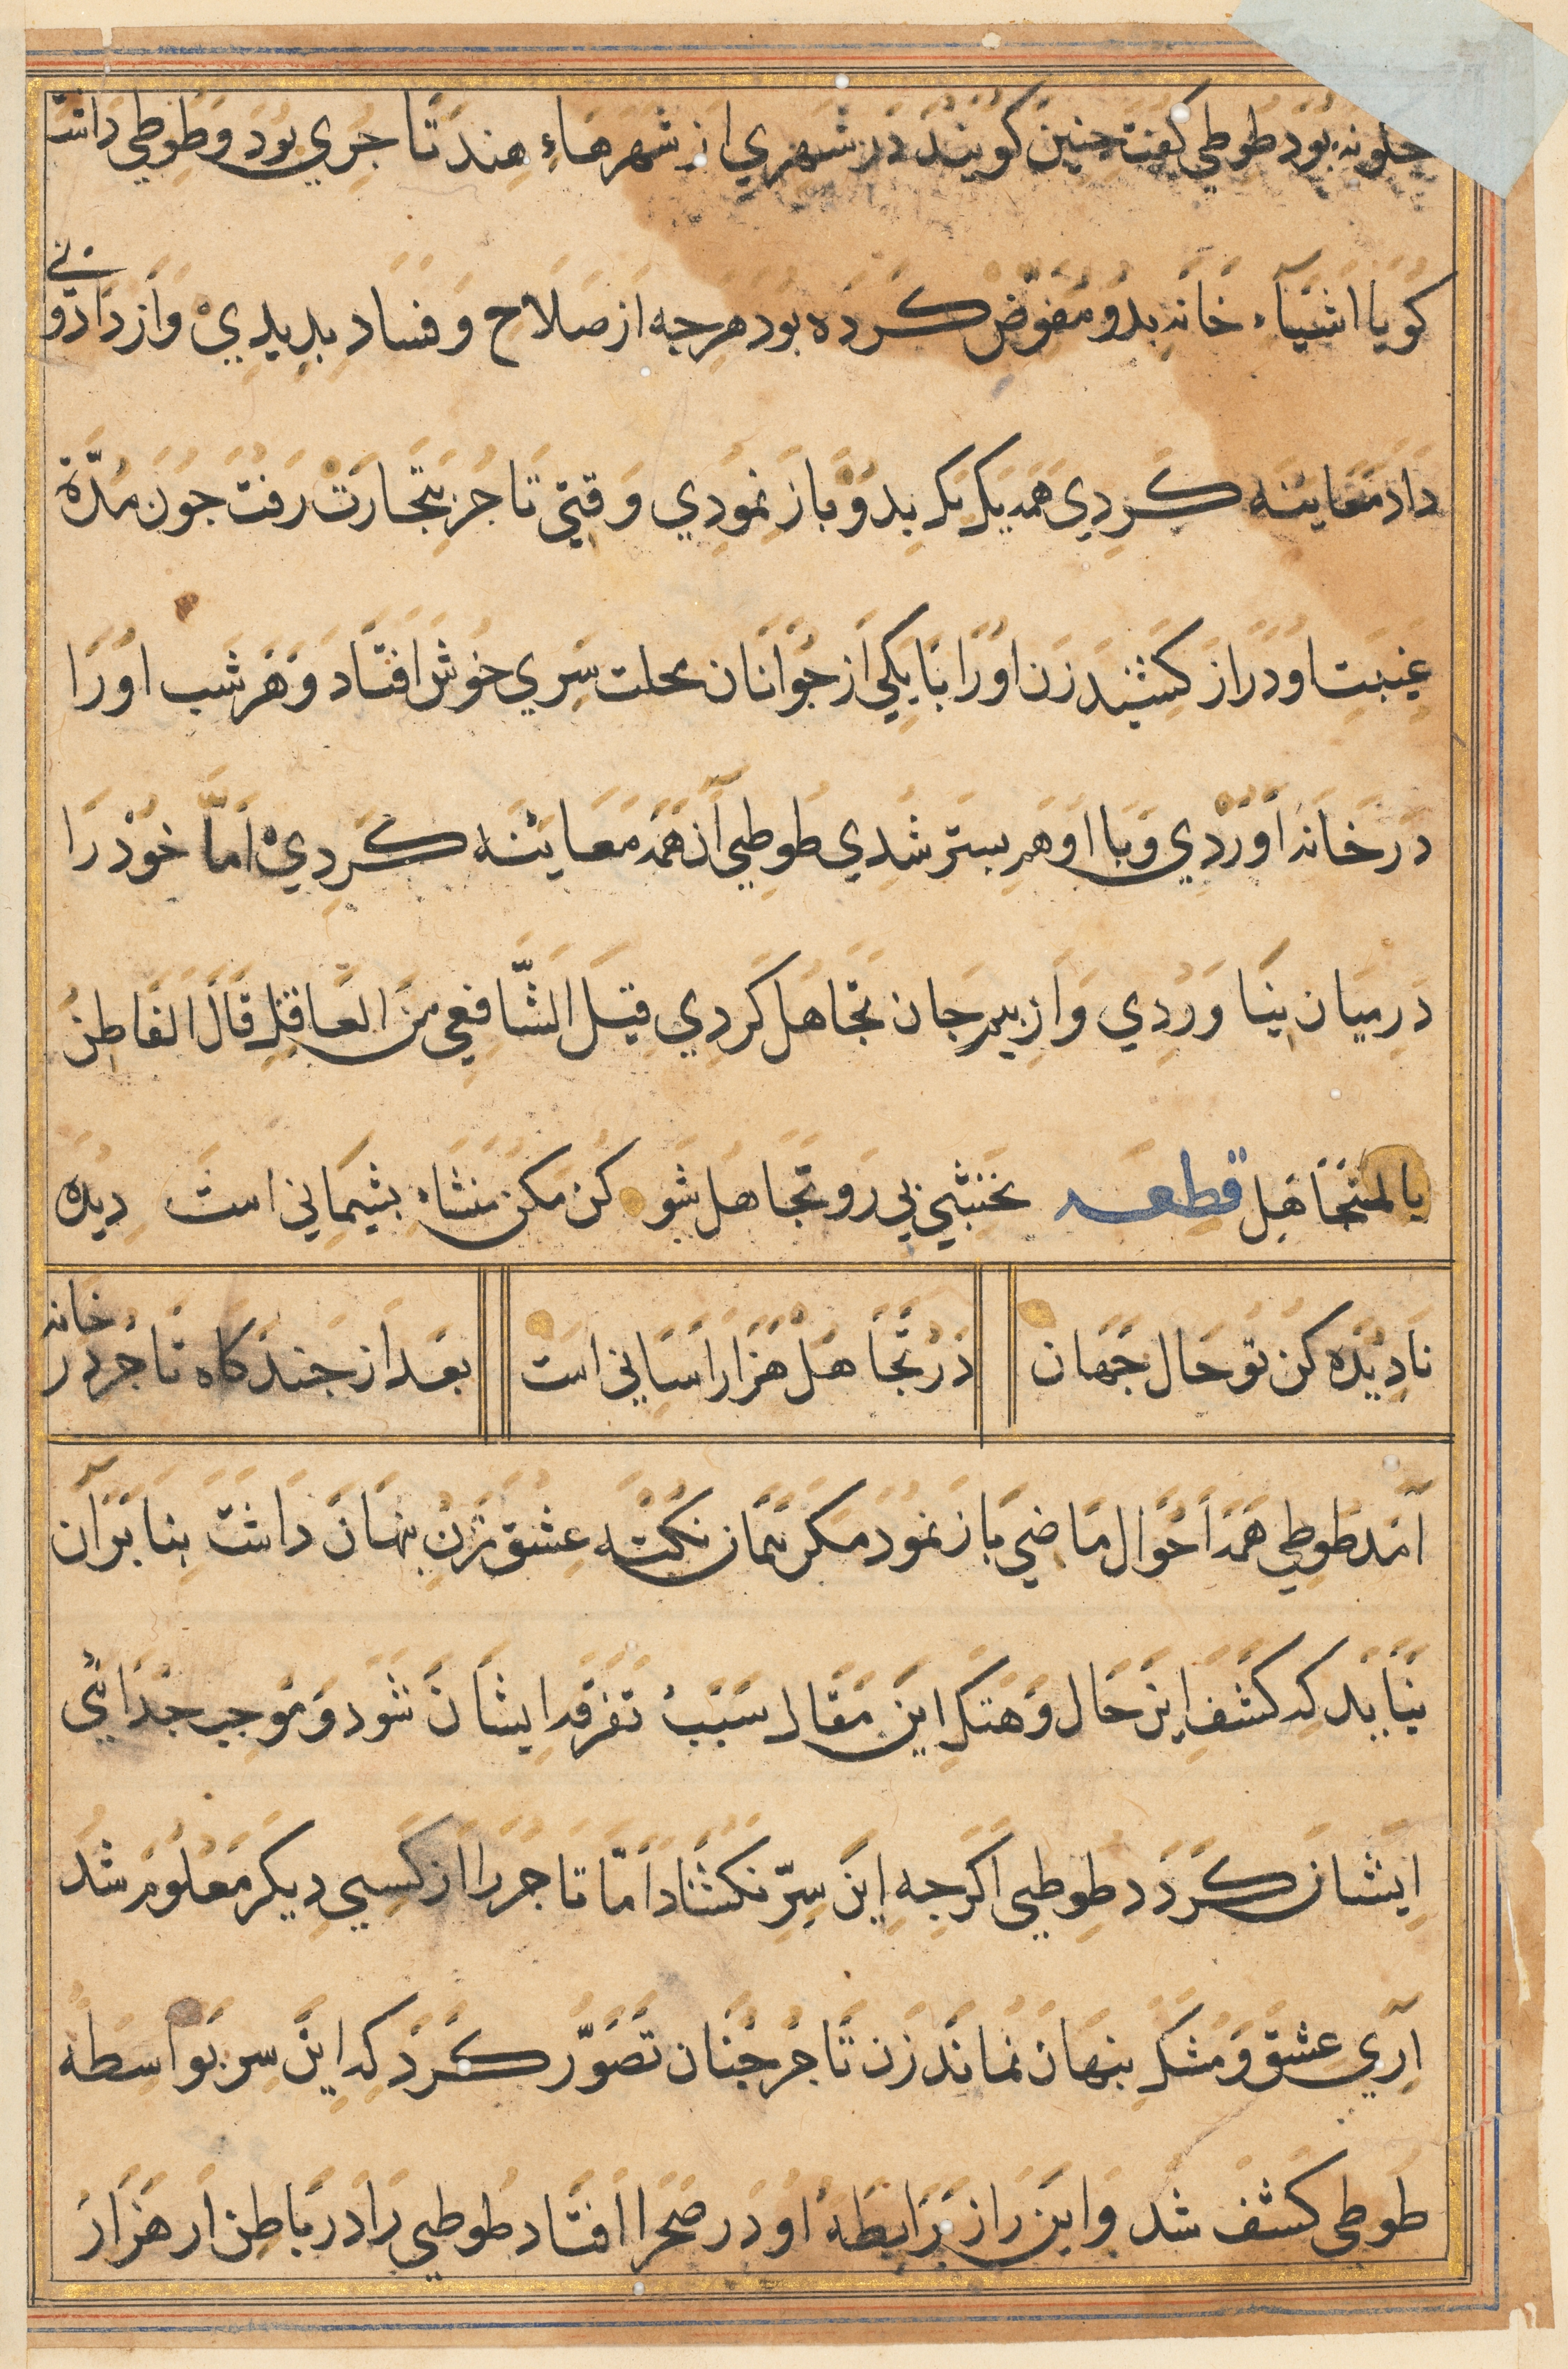 جكونه بود طوطي كفت جنين كويند در شهري از شهرهاءِ هند تاجري بود و طوطي داشت
كويا اشياء خانه بدو مفوّض كرده بود هرجه از صلاح و فساد بديدي و از داد و بي
داد معاينه كردي همه يك يك بدو باز نمودي وقتي تاجر بتجارت رفت جون مدّة
غيبت او دراز كشيد زن او را با يكي از جوانان محلت سري خوش افتاد و هر شب او را
در خانه اوردي و با او هم بستر شدي طوطي آن همه معاينه كردي اما خود را
در ميان نياوردي و از بيم جان تجاهل كردي قيل الشافعي من العاقل قال الفاطن
بالمتجاهل قطعه نخشبي رو تجاهل شو كن مكن منشاء بشيماني است ديده
ناديده كن تو حال جهان در تجاهل هزار اساني است بعد از جند كاه تاجر در خانه
آمد طوطي همه احوال ماضي باز نمود مكر همان نكته عشق زن بنهان داشت بنا بر آن
نبايد كه كشف اين حال و هتك اين مقال سبب تفرقه ايشان شود و موجب جدائي
ايشان كردد طوطي اكرجه اين سرّ نكشاد امّا تاجر را از كسي ديكر معلوم شد
اري عشق و مشك بنهان نماند زن تاجر جنان تصوّر كرد كه اين سر بواسطه
طوطي كشف شد و اين راز برابطه او در صحرا افتاد طوطي را در باطن ار هزار